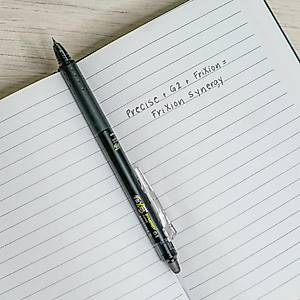 Precise + G2 + FriXion =
FriXion Synergy